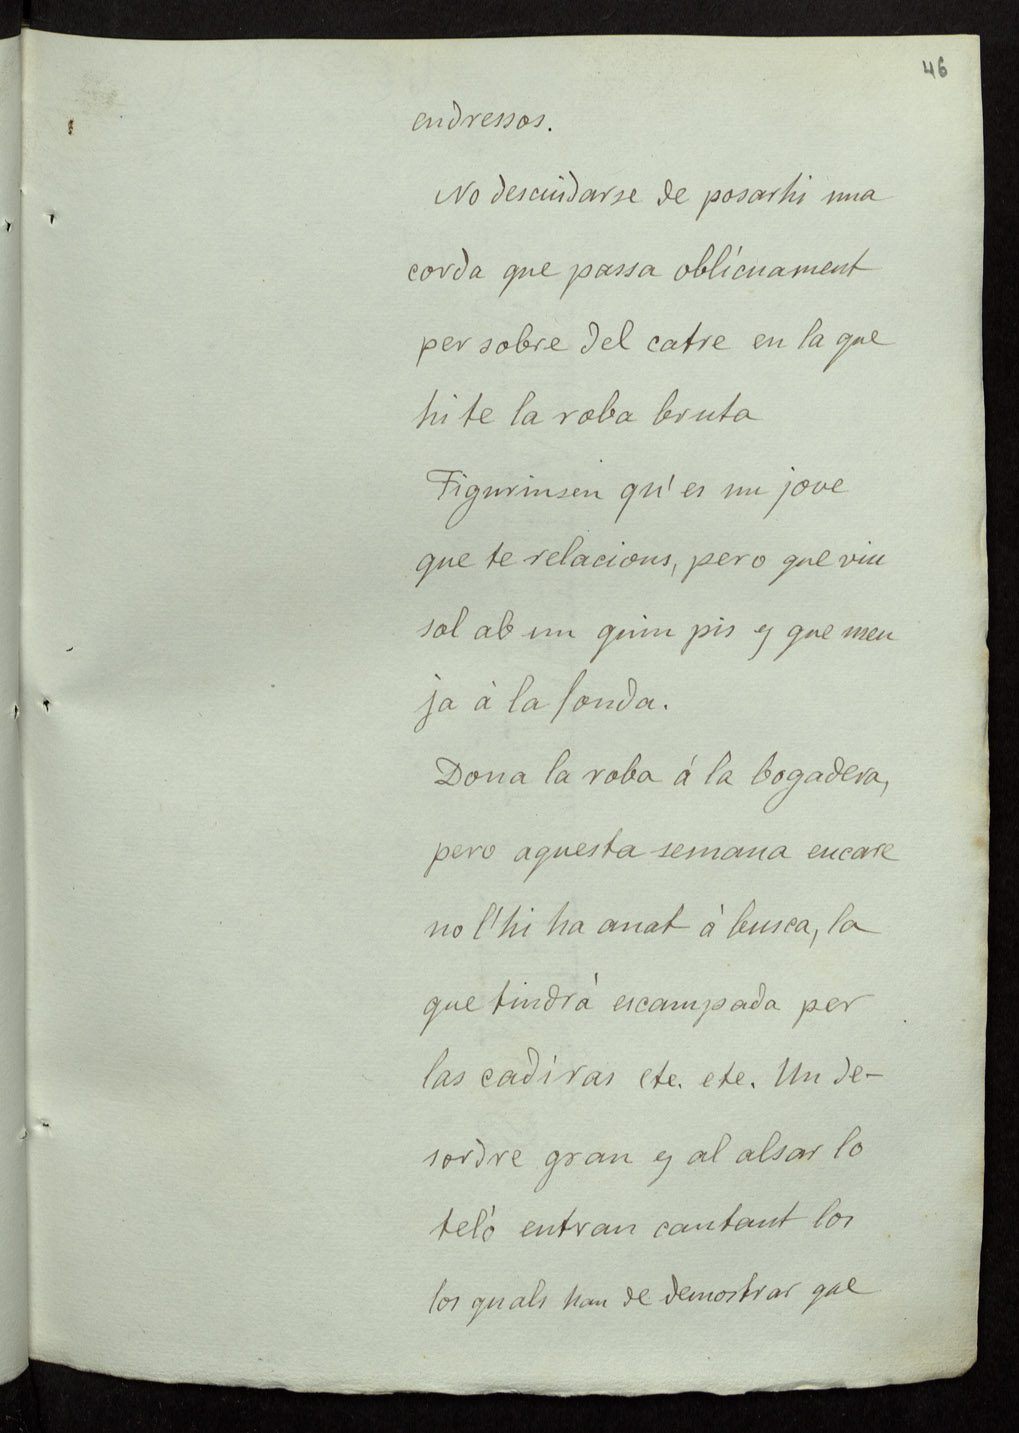 46
endressos.
No descuidarse de posarhi una
corda que passa oblícuament
per sobre del catre en la que
hi te la roba bruta
Figurinsen qu' es un jove
que te relacions, pero que viu
sol ab un quin pis y que men
ja á la fonda.
Dona la roba á la bogadera,
pero aquesta semana encare
no l'hi ha anat á busca, la
que tindrá escampada per
las cadiras etc. etc. Un de-
sordre gran y al alsar lo
teló entran cantant los
los quals han de demostrar que